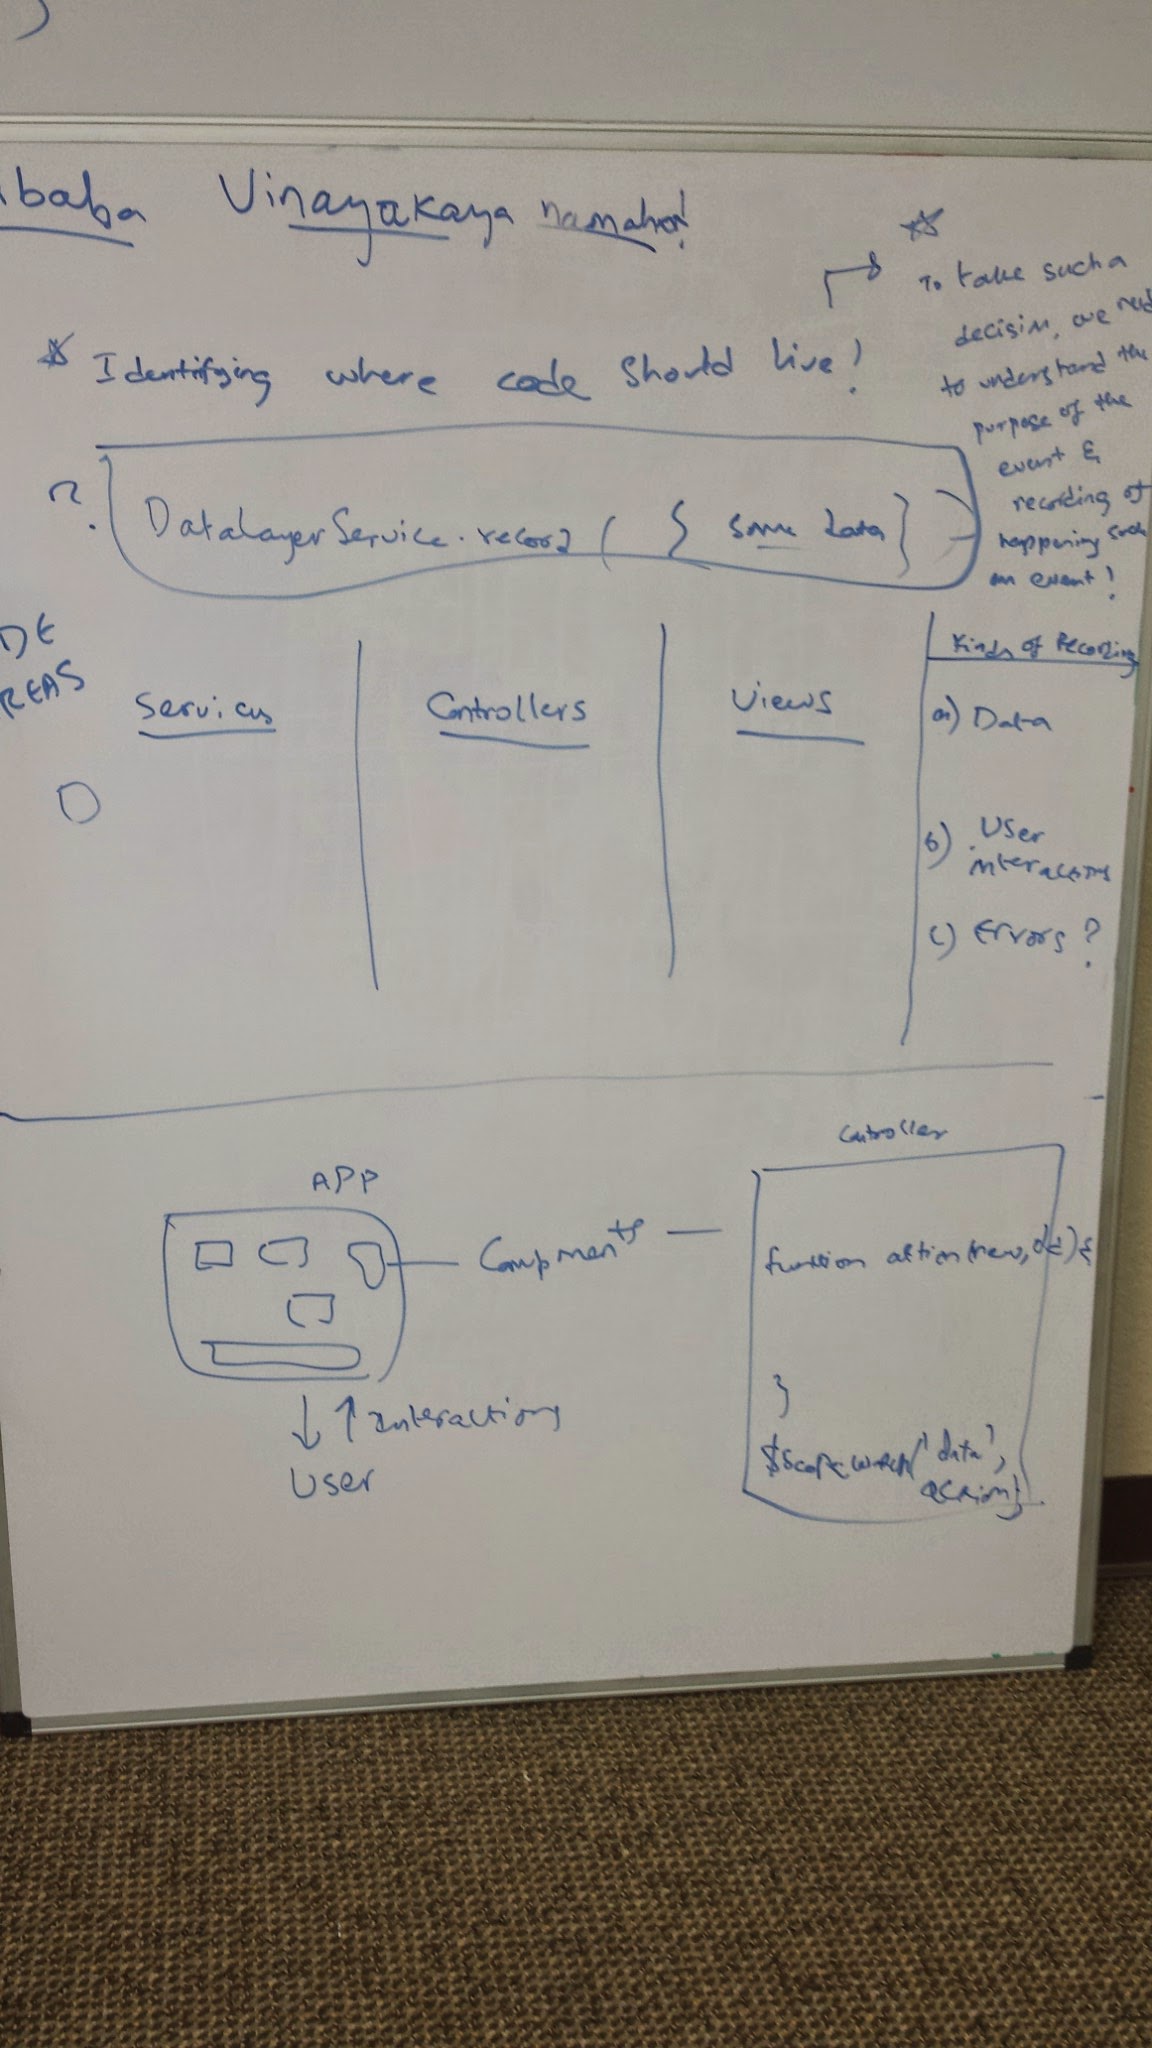 baba Vinayakaya namaha!
☆ Identifying where code should live!
☆
To take such a
decision, we need
to understand the
purpose of the
event &
recording of
happening such
an event!
? DataLayerService.record( { some data }
DE
REAS
Services
Controllers
Views
Kinds of Recording
a) Data
b) User
interactions
c) Errors?
APP
Components
Interactions
User
Controller
function action(new, old) {
}
$scope.watch('data',
action);